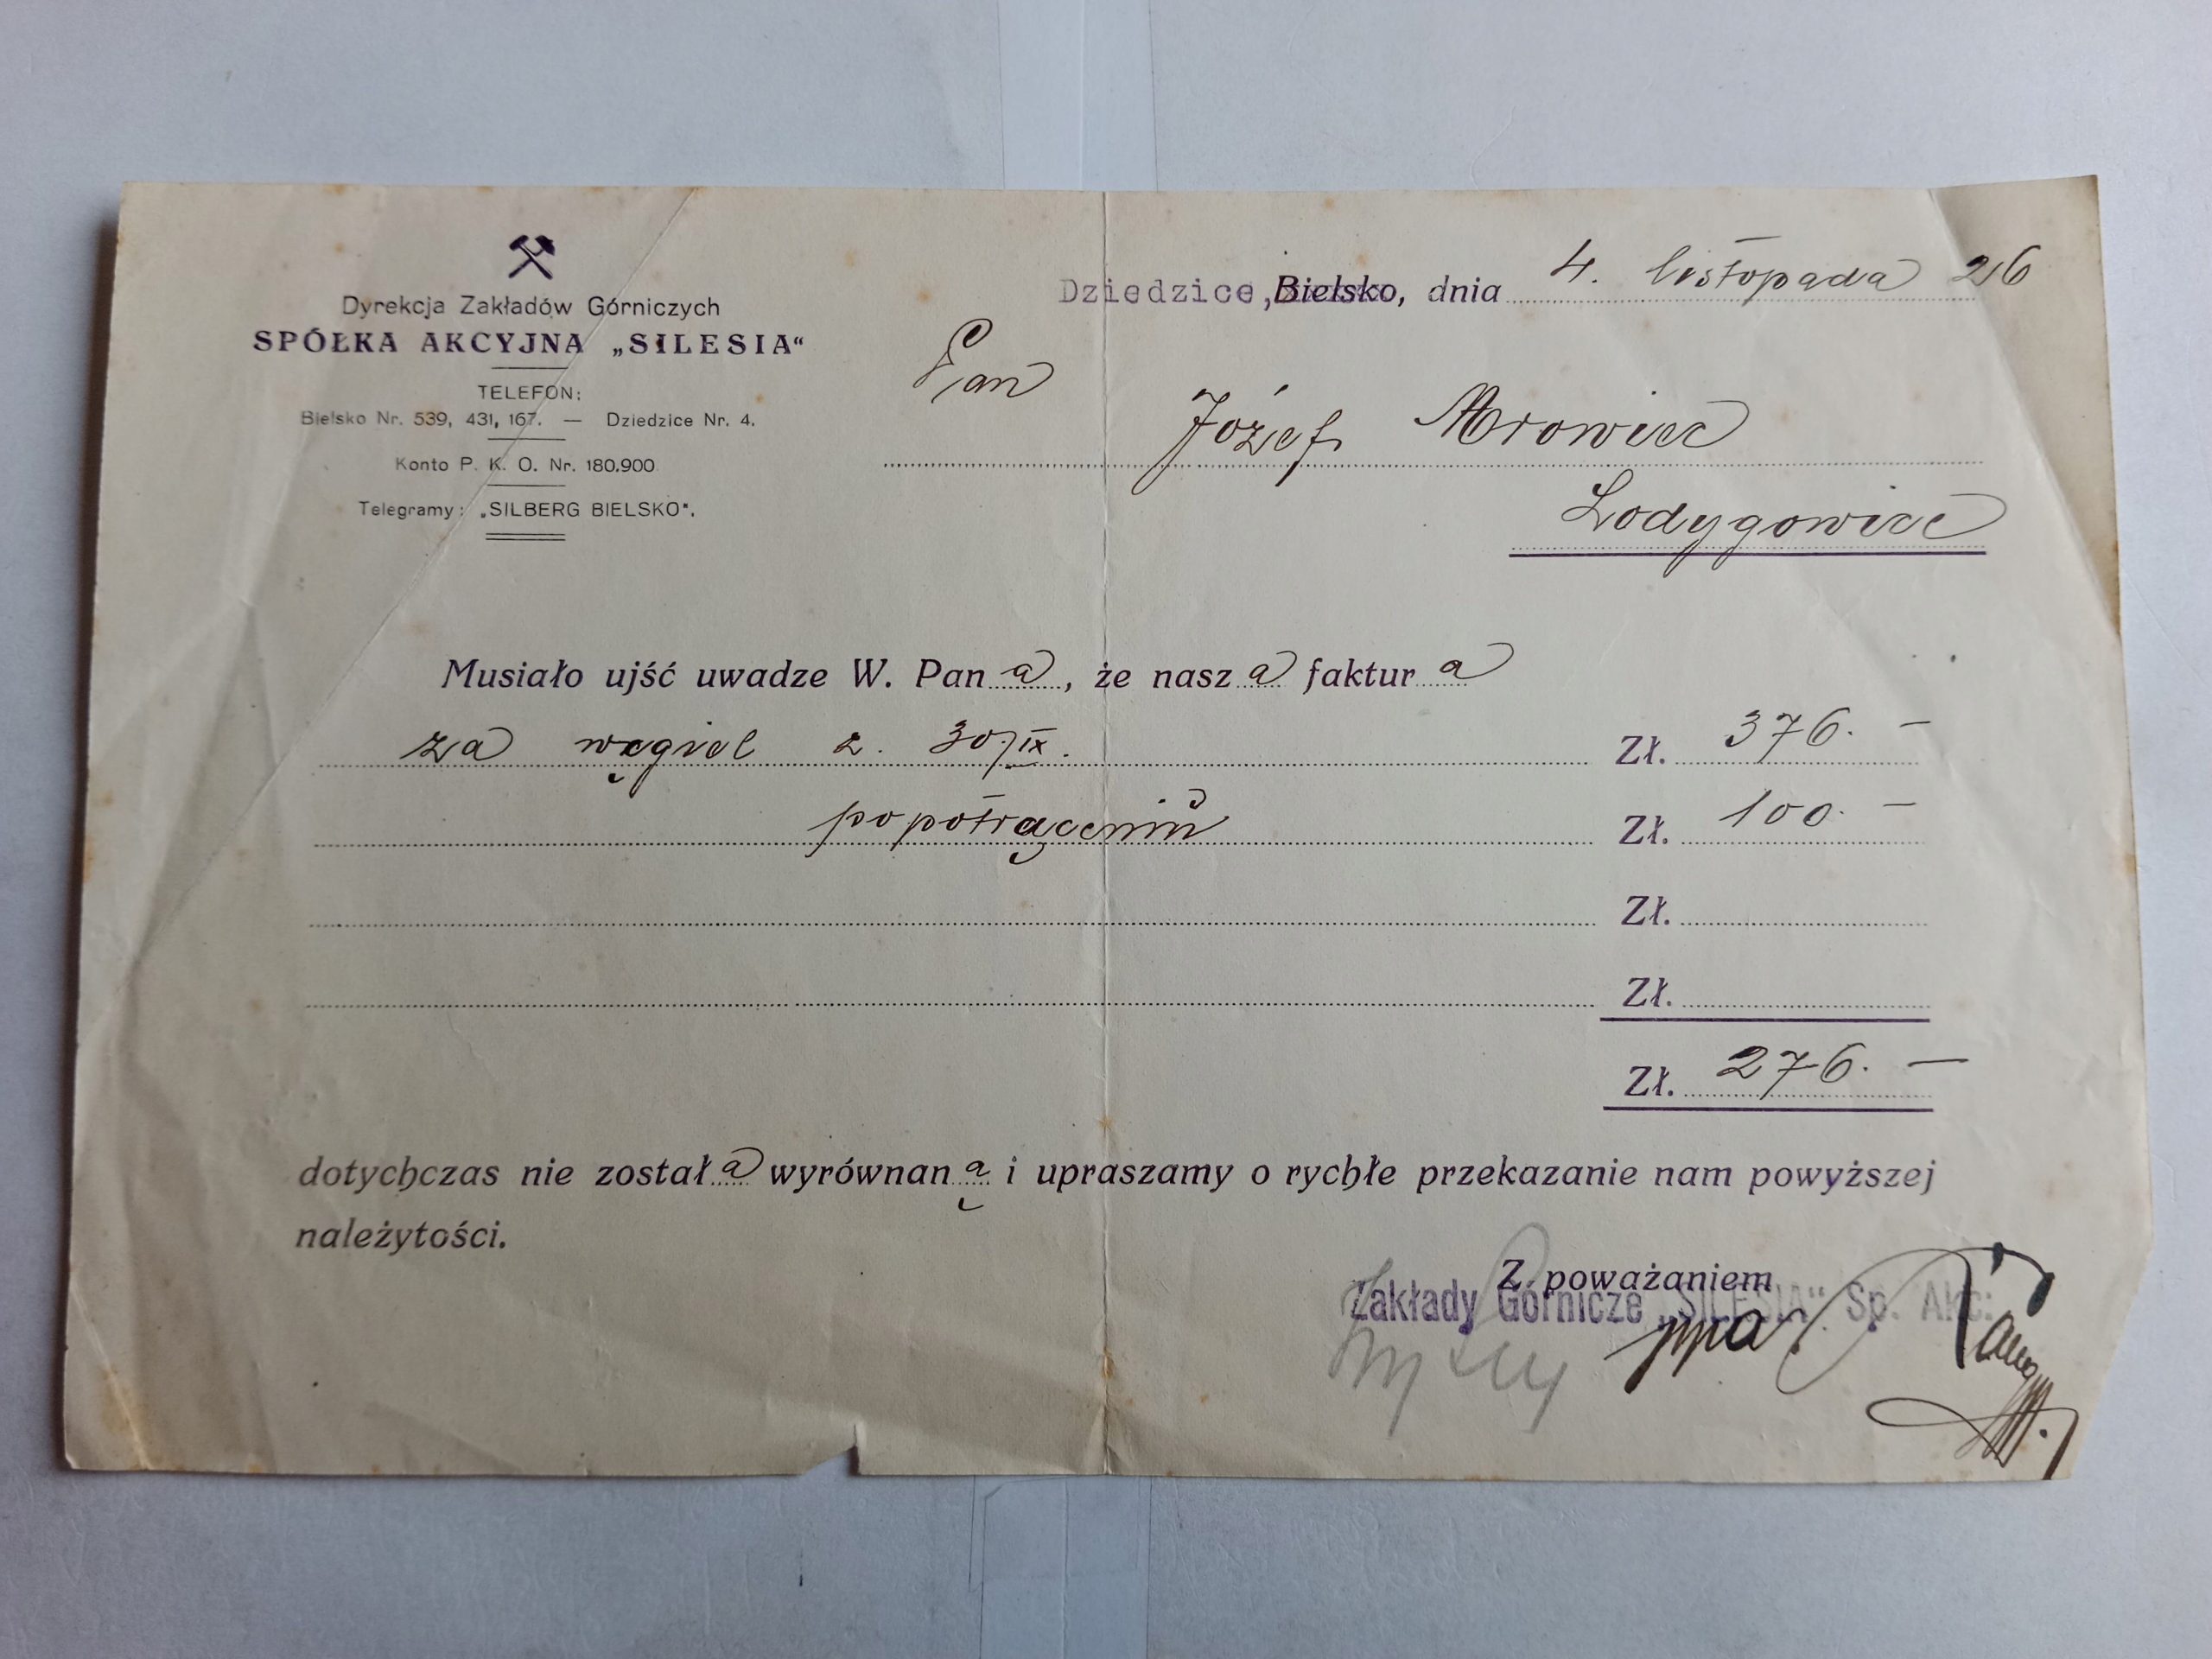 Dyrekcja Zakładów Górniczych
SPÓŁKA AKCYJNA „SILESIA“
TELEFON:
Bielsko Nr. 539, 431, 167. — Dziedzice Nr. 4.
Konto P. K. O. Nr. 180.900
Telegramy: „SILBERG BIELSKO“.
Dziedzice, Bielsko, dnia 4. listopada 26
Pan
Józef Mrowiec
Lodygowice
Musiało ujść uwadze W. Pana, że nasza faktura
za węgiel z. 30/IX. Zł. 376.—
po potrąceniu Zł. 100.—
Zł.
Zł.
Zł. 276.—
dotychczas nie została wyrównaną i upraszamy o rychłe przekazanie nam powyższej
należytości.
Z poważaniem
Zakłady Górnicze „SILESIA“ Sp. Akc.
ppa